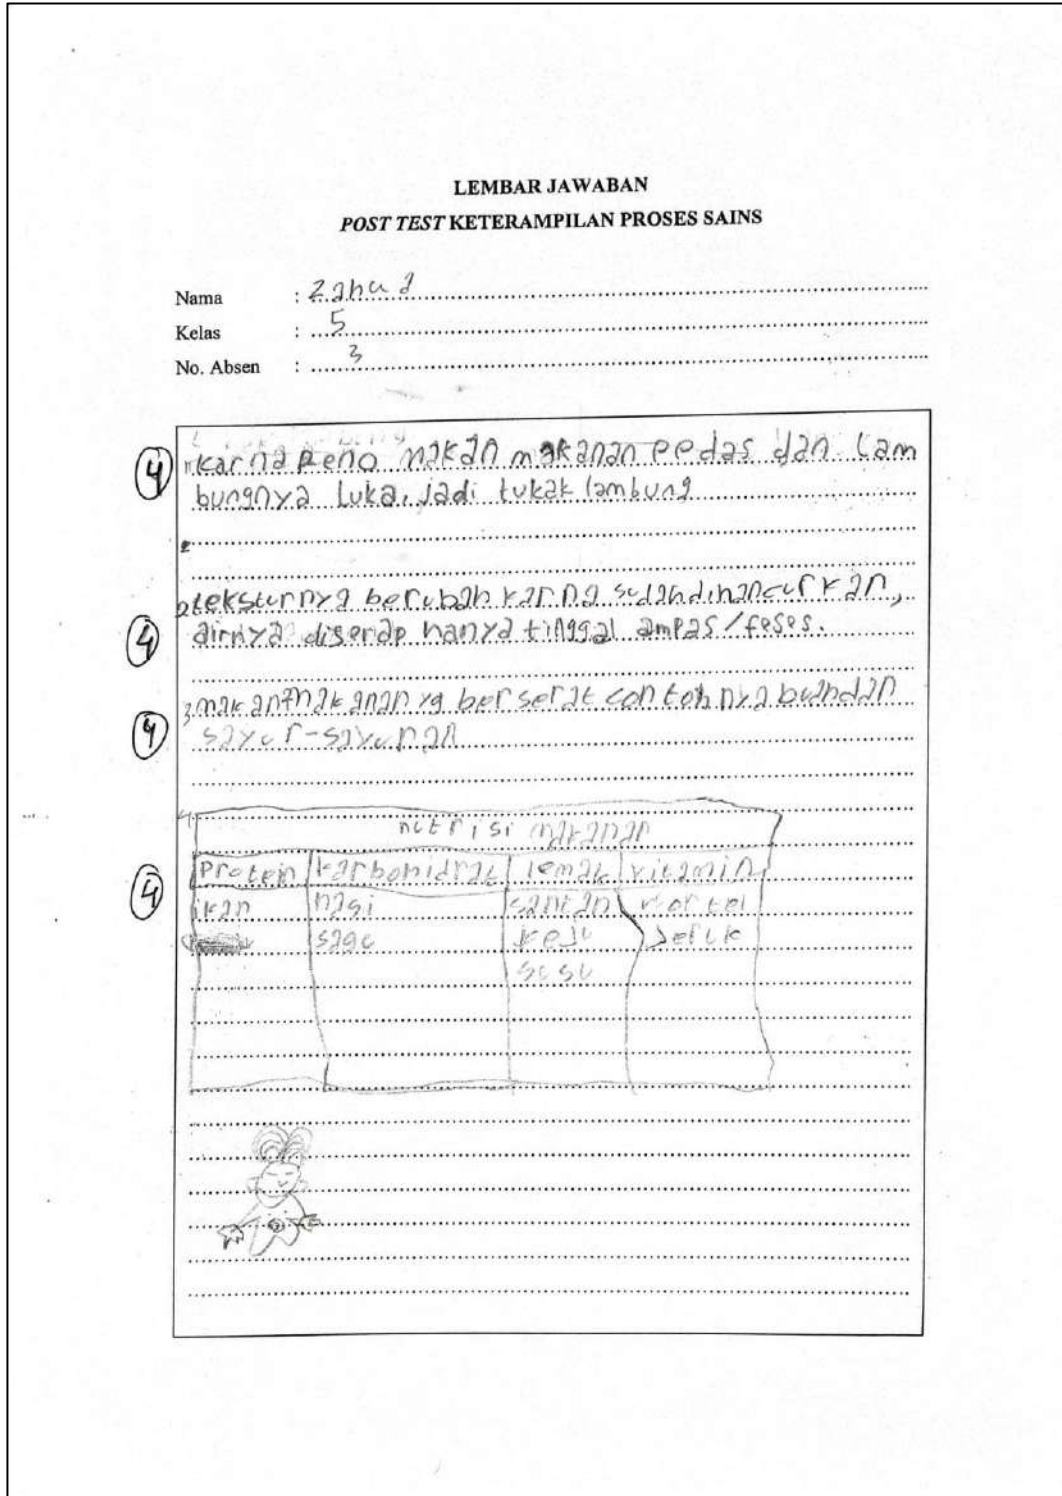 LEMBAR JAWABAN
POST TEST KETERAMPILAN PROSES SAINS
Nama : Zahu a
Kelas : 5
No. Absen : 3
④ 1. karna Reno makan makanan pedas dan Lam
bungnya luka, jadi tukak lambung
2
④ 2 teksturnya berubah karna sudah dihancurkan,
airnya diserap hanya tinggal ampas/feses.
④ 3. makan makanan yg berserat contohnya buahdan
sayur-sayuran
4.
nutrisi makanan
④ Protein karbohidrat lemak vitamin
ikan nasi santan wortel
sagu keju Jeruk
susu